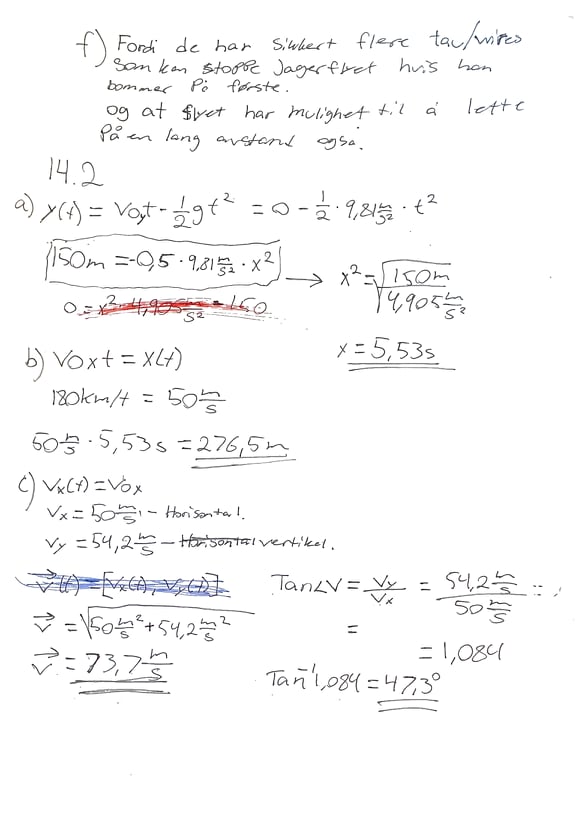 f) Fordi de har sikkert flere tau/wires
som kan stoppe Jagerflyet hvis han
bommer på første.
og at flyet har mulighet til å lette
På en lang avstand også.
14.2
a) y(t) = v0yt - 1/2 g t² = 0 - 1/2 · 9,81 m/s² · t²
150m = -0,5 · 9,81 m/s² · x² → x² = √(150m / 4,905 m/s²)
x = 5,53s
b) V0x t = x(t)
180km/t = 50 m/s
50 m/s · 5,53s = 276,5m
c) Vx(t) = V0x
Vx = 50 m/s - Horisontal.
Vy = 54,2 m/s - Horisontal vertikal.
v⃗(t) = [Vx(t), Vy(t)] Tan∠V = Vy/Vx = 54,2 m/s / 50 m/s =
v⃗ = √(50 m/s² + 54,2 m/s²) =
= 1,084
v⃗ = 73,7 m/s
Tan⁻¹ 1,084 = 47,3°